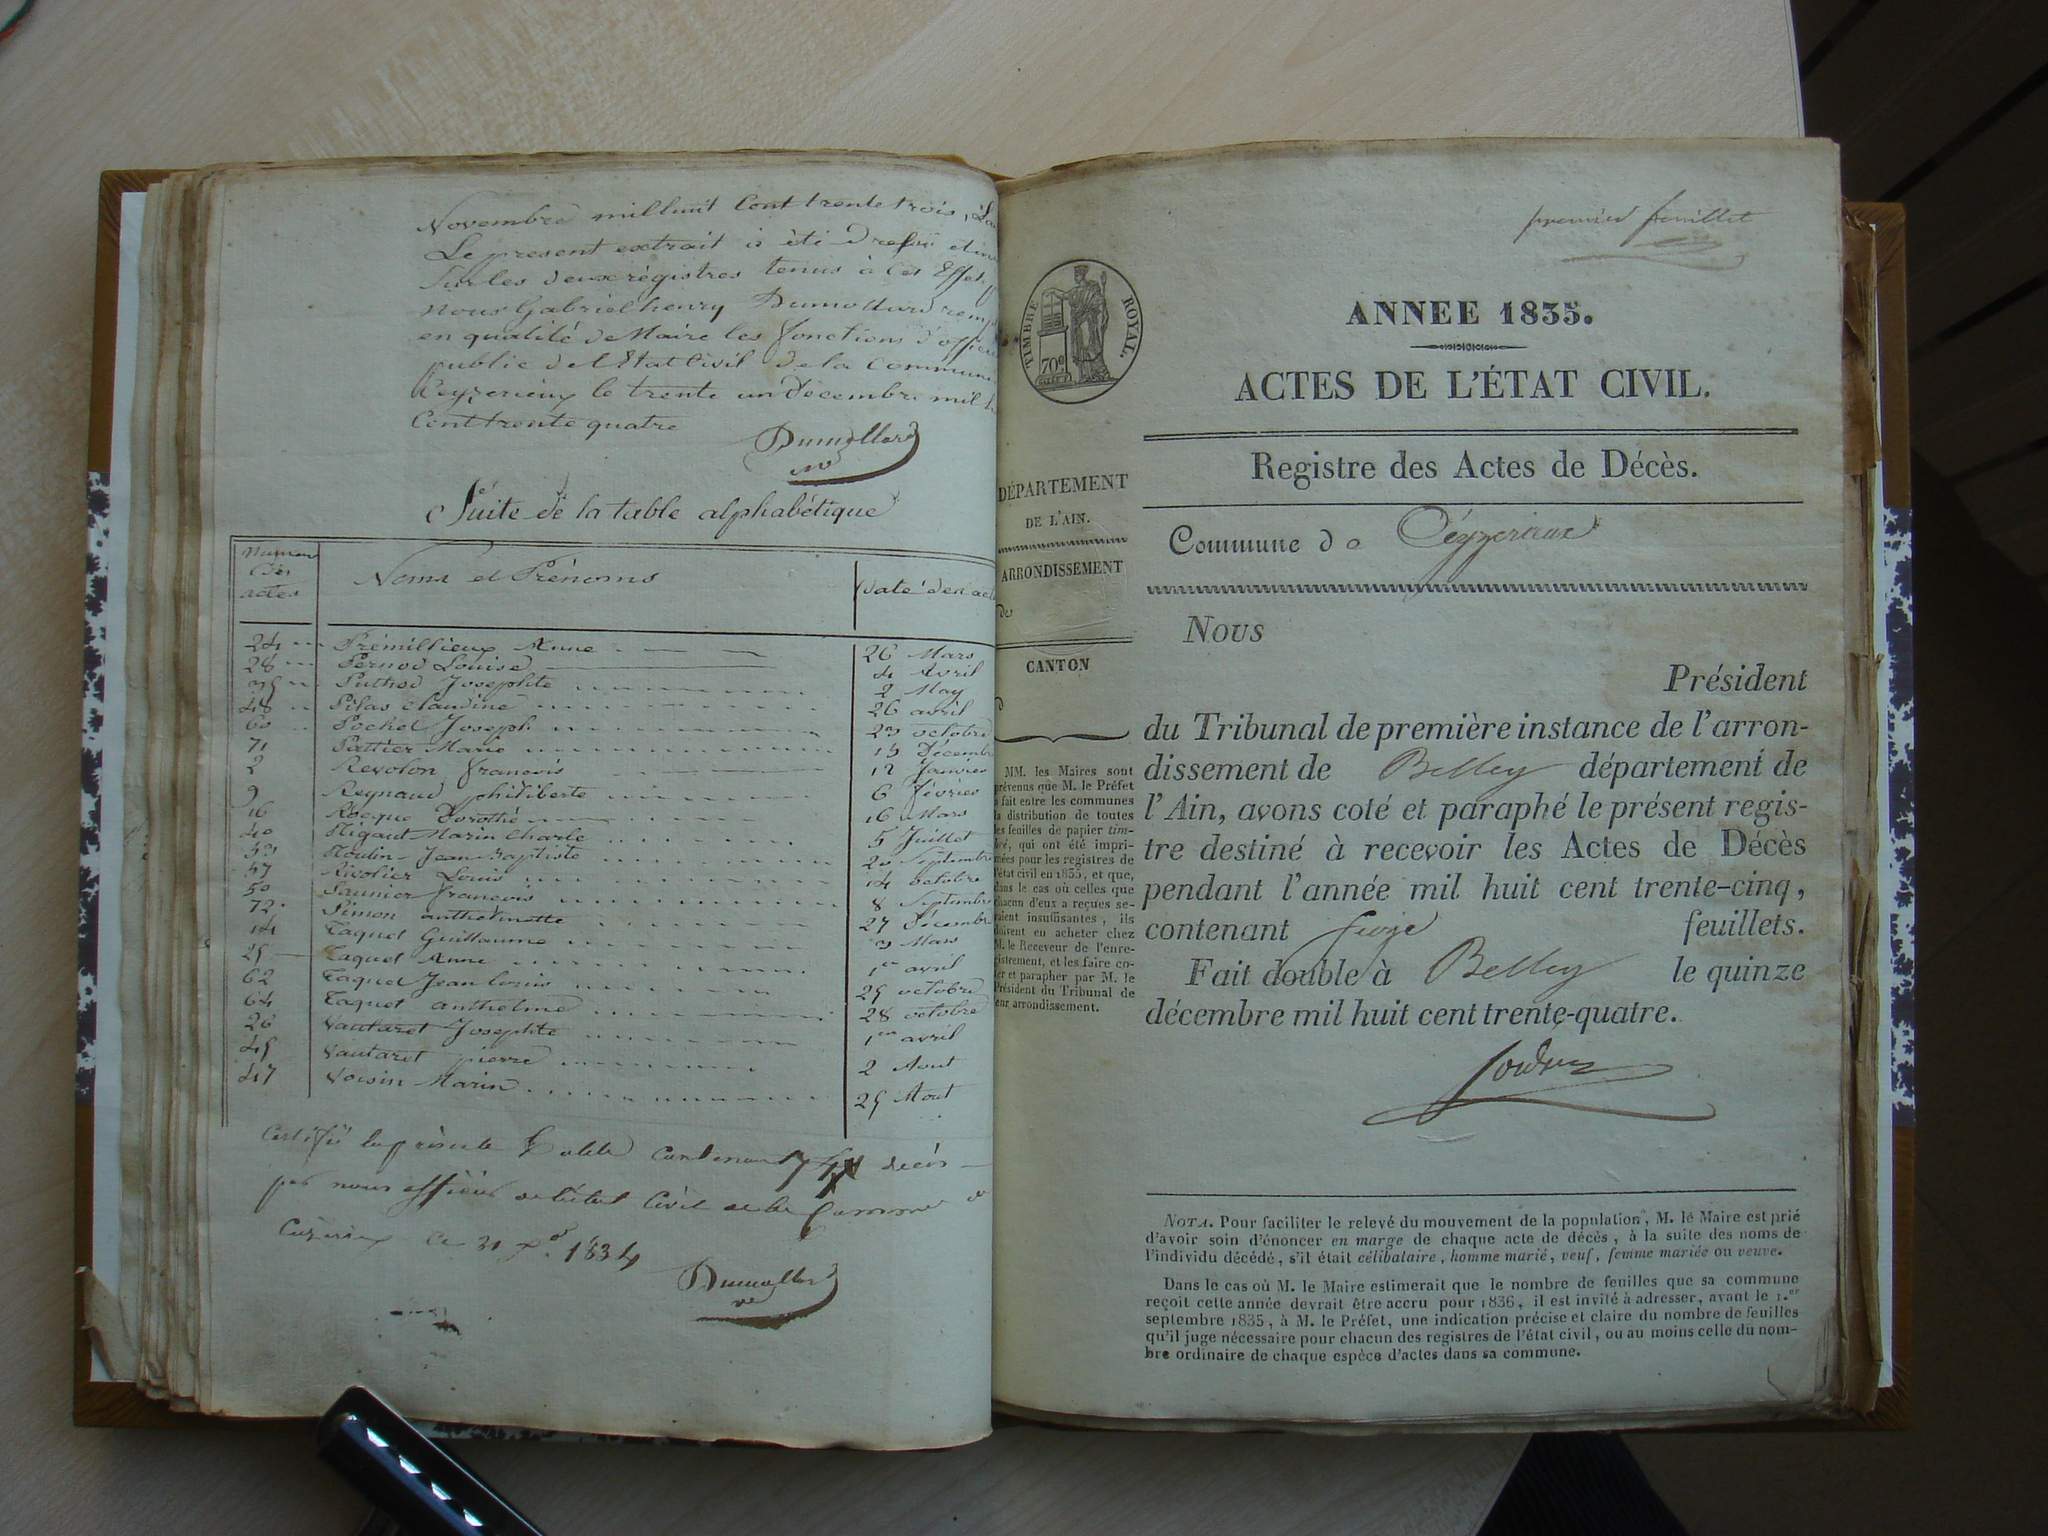 Novembre mil huit Cent trente trois,
Le présent extrait à été dressé et
Sur les deux régistres tenus à cet Effet,
Nous Gabriel henry Dumollard
en qualité de Maire les fonctions d'offici
public de l'Etat Civil de la Commune
Ceyzerieux le trente un Décembre mil h
Cent trente quatre
Dumollard
Suite de la table alphabétique
Numero
Des
actes
Noms et Prénoms
Date des act
24 Prémillieux Anne 26 Mars
28 Pernod Louise 4 Avril
35 Puthod Josephte 2 May
48 Pilas Claudine 26 avril
60 Pochet Joseph 23 octobre
71 Pattier Marie 15 Décembre
2 Revolon francois 12 Janvier
9 Reynaud philiberte 6 février
16 Rocque Dorothé 16 Mars
40 Rigaut Marin Charle 5 Juillet
53 Roulin Jean Baptiste 20 Septembre
57 Rivolier Louis 14 octobre
50 Saunier francois 8 Septembre
72 Simon anthelmette 27 Décembre
14 Taquet Guillaume 3 Mars
25 Taquet Anne 1er avril
62 Taquet Jean Louis 25 octobre
64 Taquet anthelme 28 octobre
26 Vautaret Josephte 1er avril
45 Vautaret pierre 2 Aout
47 Voisin Marin 25 Aout
Certifié la présente Table Contenant décès
par nous officier de l'état Civil de la Commune de
Ceyzerieux Ce 31 Xe 1834
Dumollard
premier feuillet
TIMBRE ROYAL.
70c
ANNEE 1835.
ACTES DE L'ÉTAT CIVIL.
Registre des Actes de Décès.
Commune de Céyzerieux
DÉPARTEMENT
DE L'AIN.
ARRONDISSEMENT
de
CANTON
d
MM. les Maires sont
prévenus que M. le Préfet
a fait entre les communes
la distribution de toutes
les feuilles de papier tim-
bré, qui ont été impri-
mées pour les registres de
l'état civil en 1835, et que,
dans le cas où celles que
chacun d'eux a reçues se-
raient insuffisantes, ils
doivent en acheter chez
M. le Receveur de l'enre-
gistrement, et les faire co-
ter et parapher par M. le
Président du Tribunal de
leur arrondissement.
Nous
Président
du Tribunal de première instance de l'arron-
dissement de Belley département de
l'Ain, avons coté et paraphé le présent regis-
tre destiné à recevoir les Actes de Décès
pendant l'année mil huit cent trente-cinq,
contenant seize feuillets.
Fait double à Belley le quinze
décembre mil huit cent trente-quatre.
NOTA. Pour faciliter le relevé du mouvement de la population, M. le Maire est prié
d'avoir soin d'énoncer en marge de chaque acte de décès, à la suite des noms de
l'individu décédé, s'il était célibataire, homme marié, veuf, femme mariée ou veuve.
Dans le cas où M. le Maire estimerait que le nombre de feuilles que sa commune
reçoit cette année devrait être accru pour 1836, il est invité à adresser, avant le 1.er
septembre 1835, à M. le Préfet, une indication précise et claire du nombre de feuilles
qu'il juge nécessaire pour chacun des registres de l'état civil, ou au moins celle du nom-
bre ordinaire de chaque espèce d'actes dans sa commune.